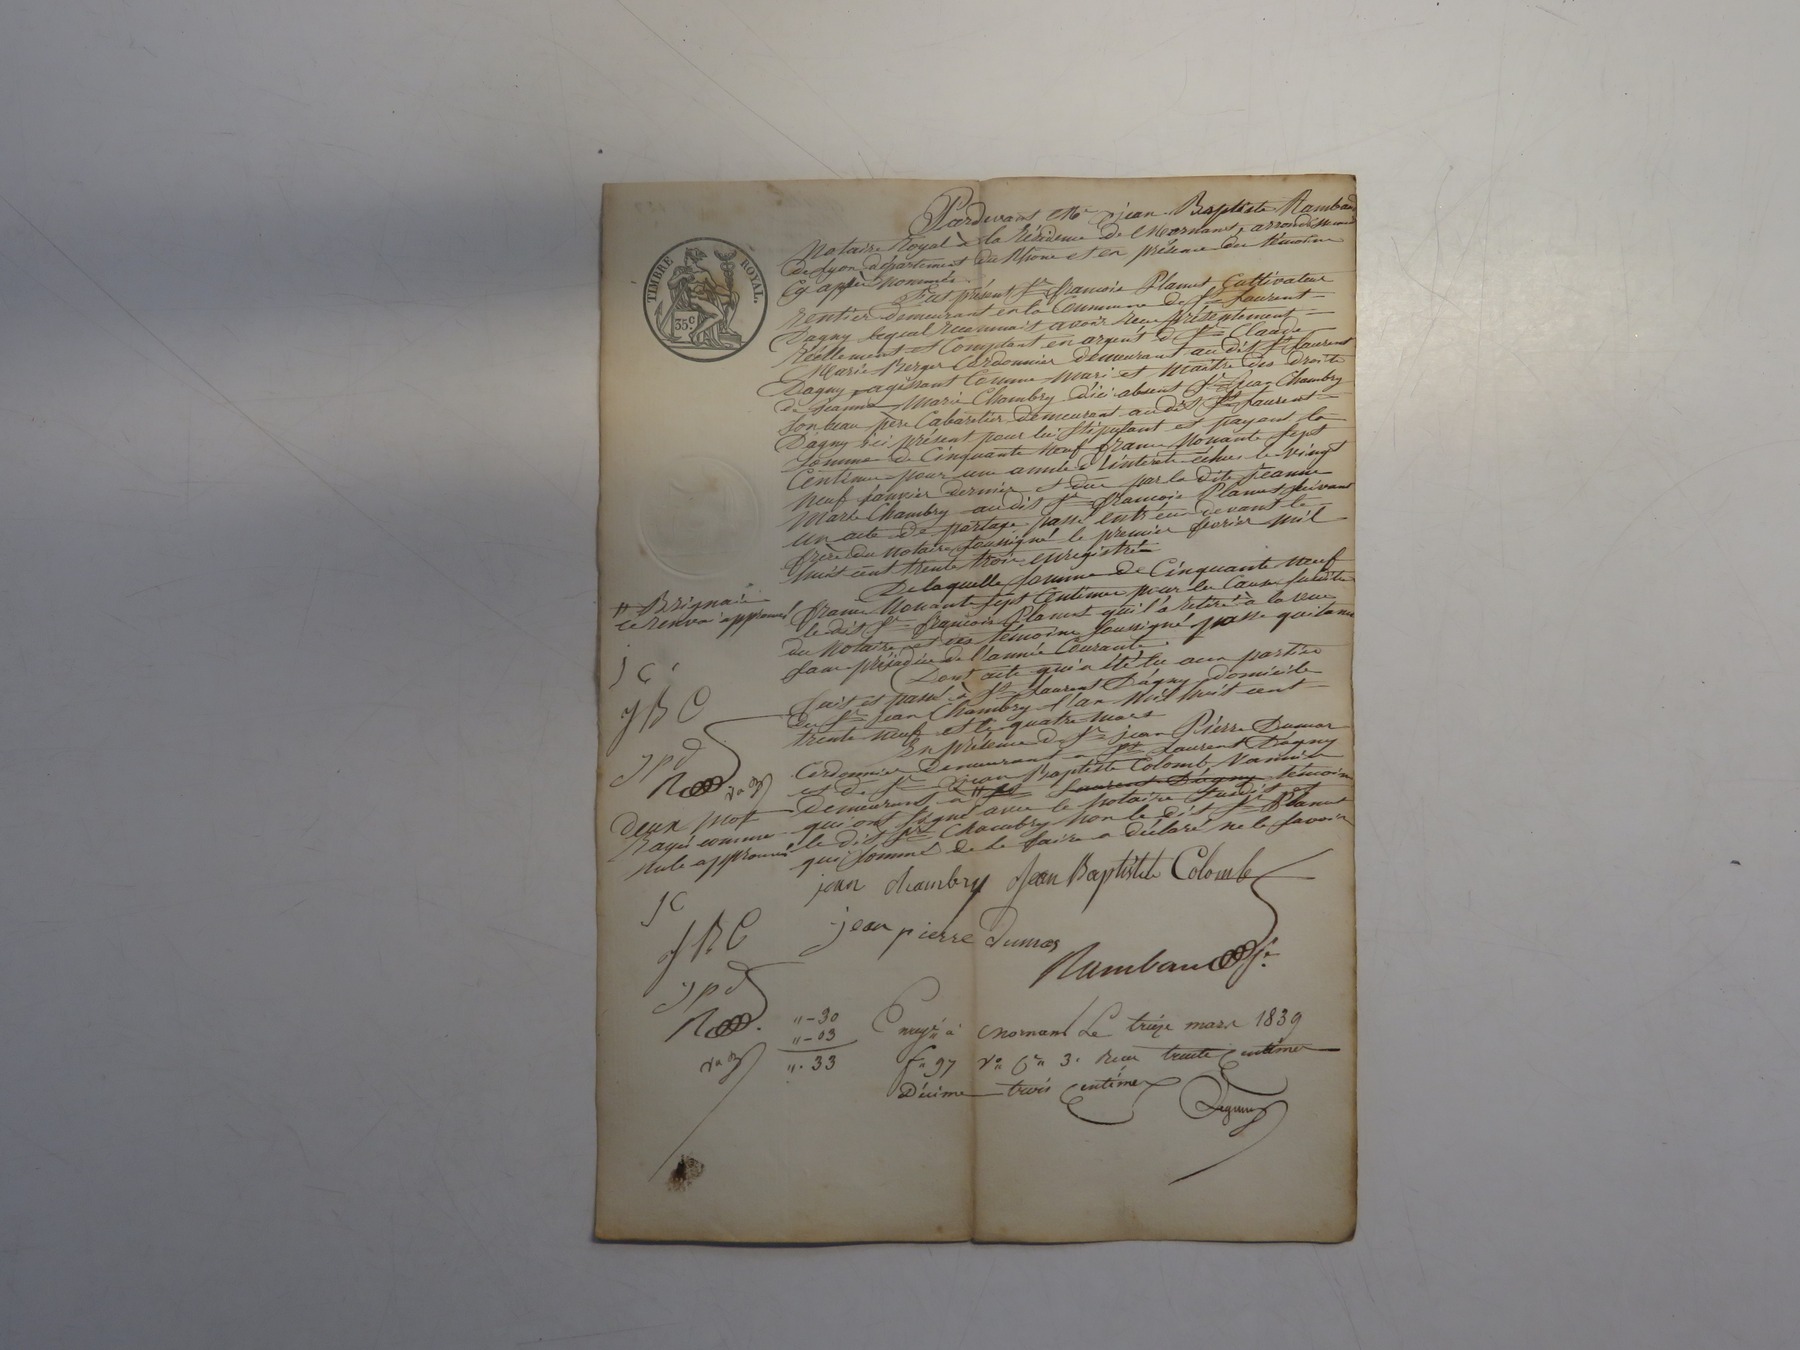 TIMBRE ROYAL.
35 c.
Pardevant Me jean Baptiste Rambaud
Notaire Royal à la résidence de Mornant, arrondissement
de Lyon département du Rhône et en présence des témoins
Cy après nommés.
Est présent Sr françois Planus Cultivateur
rentier demeurant en la Commune de St Laurent
Dagny lequel reconnait avoir reçu présentement
Réellement et Comptant en argent de Sr Claude
Marie Berger Cordonnier demeurant au dit St Laurent
Dagny agissant Comme mari et maître des droits
de jeanne Marie Chambry d'ici absent Sr jean Chambry
son beau père Cabaretier demeurant au dit St Laurent
Dagny ici présent pour lui stipulant et payant la
somme de Cinquante neuf francs Nonante sept
Centimes pour une année d'intérêts échue le vingt
neuf janvier dernier et due par la dite jeanne
Marie Chambry au dit Sr françois Planus suivant
un acte de partage passé entr'eux devant le
frère du Notaire soussigné le premier fevrier mil
huit cent trente trois enregistré
De laquelle somme de Cinquante neuf
francs Nonante sept Centimes pour les Causes susdites
le dit Sr françois Planus qui l'a retiré à la vue
du Notaire et des témoins soussignés passe quittance
sans préjudice de l'année Courante
Dont acte qui a été lu aux parties
fait et passé à St Laurent Dagny domicile
du Sr jean Chambry l'an mil huit cent
trente neuf et le quatre mars
En présence de Sr jean Pierre Dumas
Cordonnier demeurant a St Laurent Dagny
et de Sr jean Baptiste Colomb Vannier
demeurant a # St Laurent Dagny témoins
qui ont signé avec le notaire susdit et
le dit Sr Chambry non le dit Sr Planus
qui sommé de le faire a déclaré ne le savoir
# Brignais
ce renvoi approuvé
J C
J B C
j p d
R
deux mots
Rayés comme
nuls approuvés
jean chambry Jean Baptiste Colomb
jean pierre dumas
Rambaud
J C
J B C
j p d
R
"-30
"-03
".33
Enregé à Mornant Le treize mars 1839
fo 97 Vo Ce 3. reçu trente Centimes
Décime trois Centimes